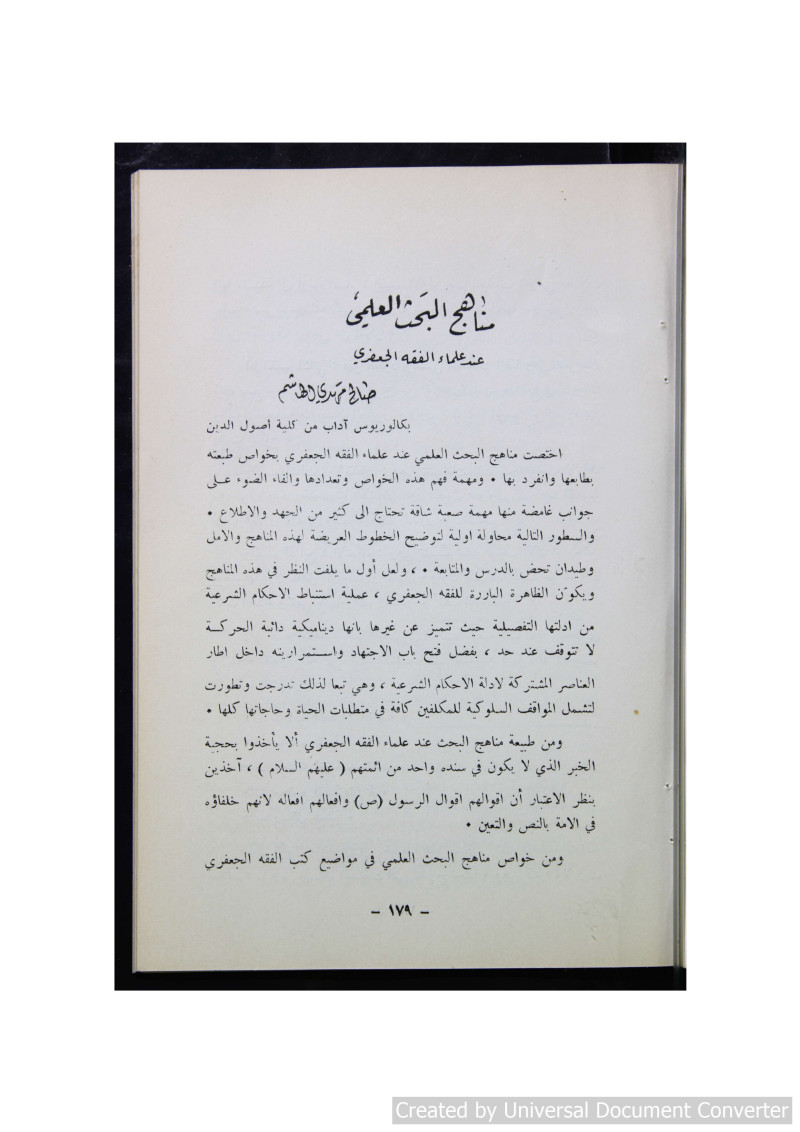 مناهج البحث العلمي
عند علماء الفقه الجعفري
صالح مهدي الهاشم
بكالوريوس آداب من كلية أصول الدين
اختصت مناهج البحث العلمي عند علماء الفقه الجعفري بخواص طبعته
بطابعها وانفرد بها • ومهمة فهم هذه الخواص وتعدادها والقاء الضوء عـلى
جوانب غامضة منها مهمة صعبة شاقة تحتاج الى كثير من الجهد والاطلاع •
والسطور التالية محاولة اولية لتوضيح الخطوط العريضة لهذه المناهج والامل
وطيدان تحض بالدرس والمتابعة • ، ولعل أول ما يلفت النظر في هذه المناهج
ويكوّن الظاهرة البارزة للفقه الجعفري ، عملية استنباط الاحكام الشرعية
من ادلتها التفصيلية حيث تتميز عن غيرها بانها ديناميكية دائبة الحركـــة
لا تتوقف عند حد ، بفضل فتح باب الاجتهاد واســتمراريته داخل اطار
العناصر المشتركة لادلة الاحكام الشرعية ، وهي تبعا لذلك تدرجت وتطورت
لتشمل المواقف السلوكية للمكلفين كافة في متطلبات الحياة وحاجاتها كلها •
ومن طبيعة مناهج البحث عند علماء الفقه الجعفري ألا يأخذوا بحجية
الخبر الذي لا يكون في سنده واحد من ائمتهم ( عليهم السلام ) ، آخذين
بنظر الاعتبار أن اقوالهم اقوال الرسول (ص) وافعالهم افعاله لانهم خلفاؤه
في الامة بالنص والتعين •
ومن خواص مناهج البحث العلمي في مواضيع كتب الفقه الجعفري
– ١٧٩ –
Created by Universal Document Converter